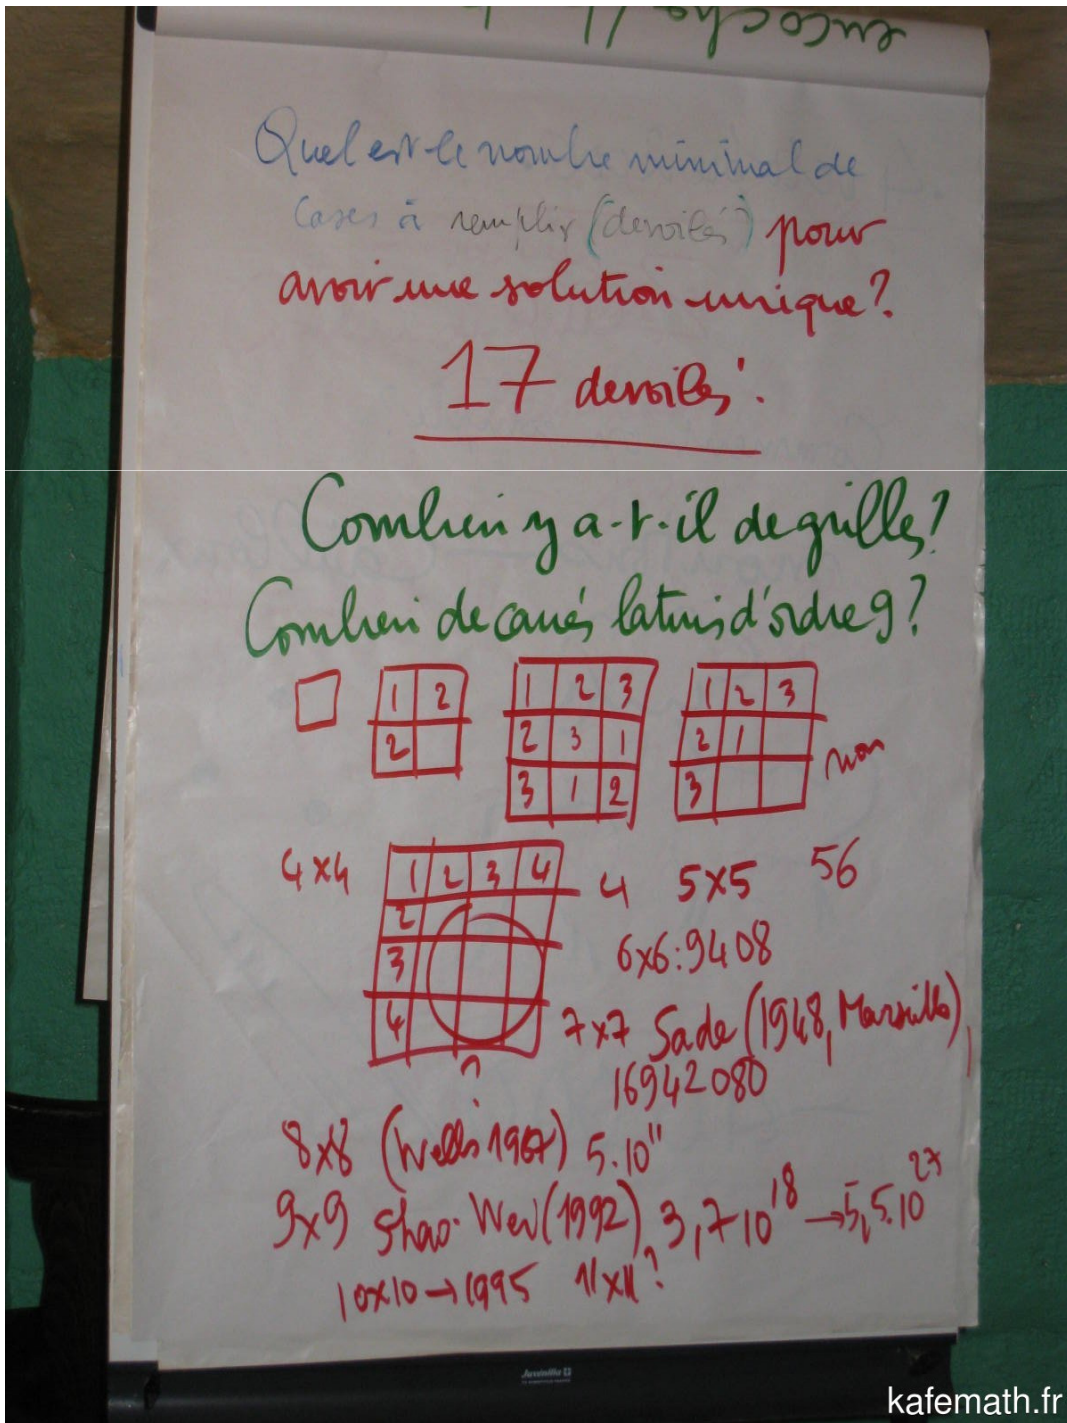 encoche
Quel est-le nombre minimal de
cases à remplir (dévoilés) pour
avoir une solution unique?
17 dévoilés.
Combien y a-t-il de grilles?
Combien de carrés latins d'ordre 9?
1 2
2
1 2 3
2 3 1
3 1 2
1 2 3
2 1
3
non
4x4
1 2 3 4
2
3
4
4 5x5 56
6x6:9408
7x7 Sade (1948, Marseille),
16942080
?
8x8 (Wells 1967) 5.10^11
9x9 Shao-Wei (1992) 3,7 10^18 → 5,5.10^27
10x10 → 1995 11x11?
kafemath.fr